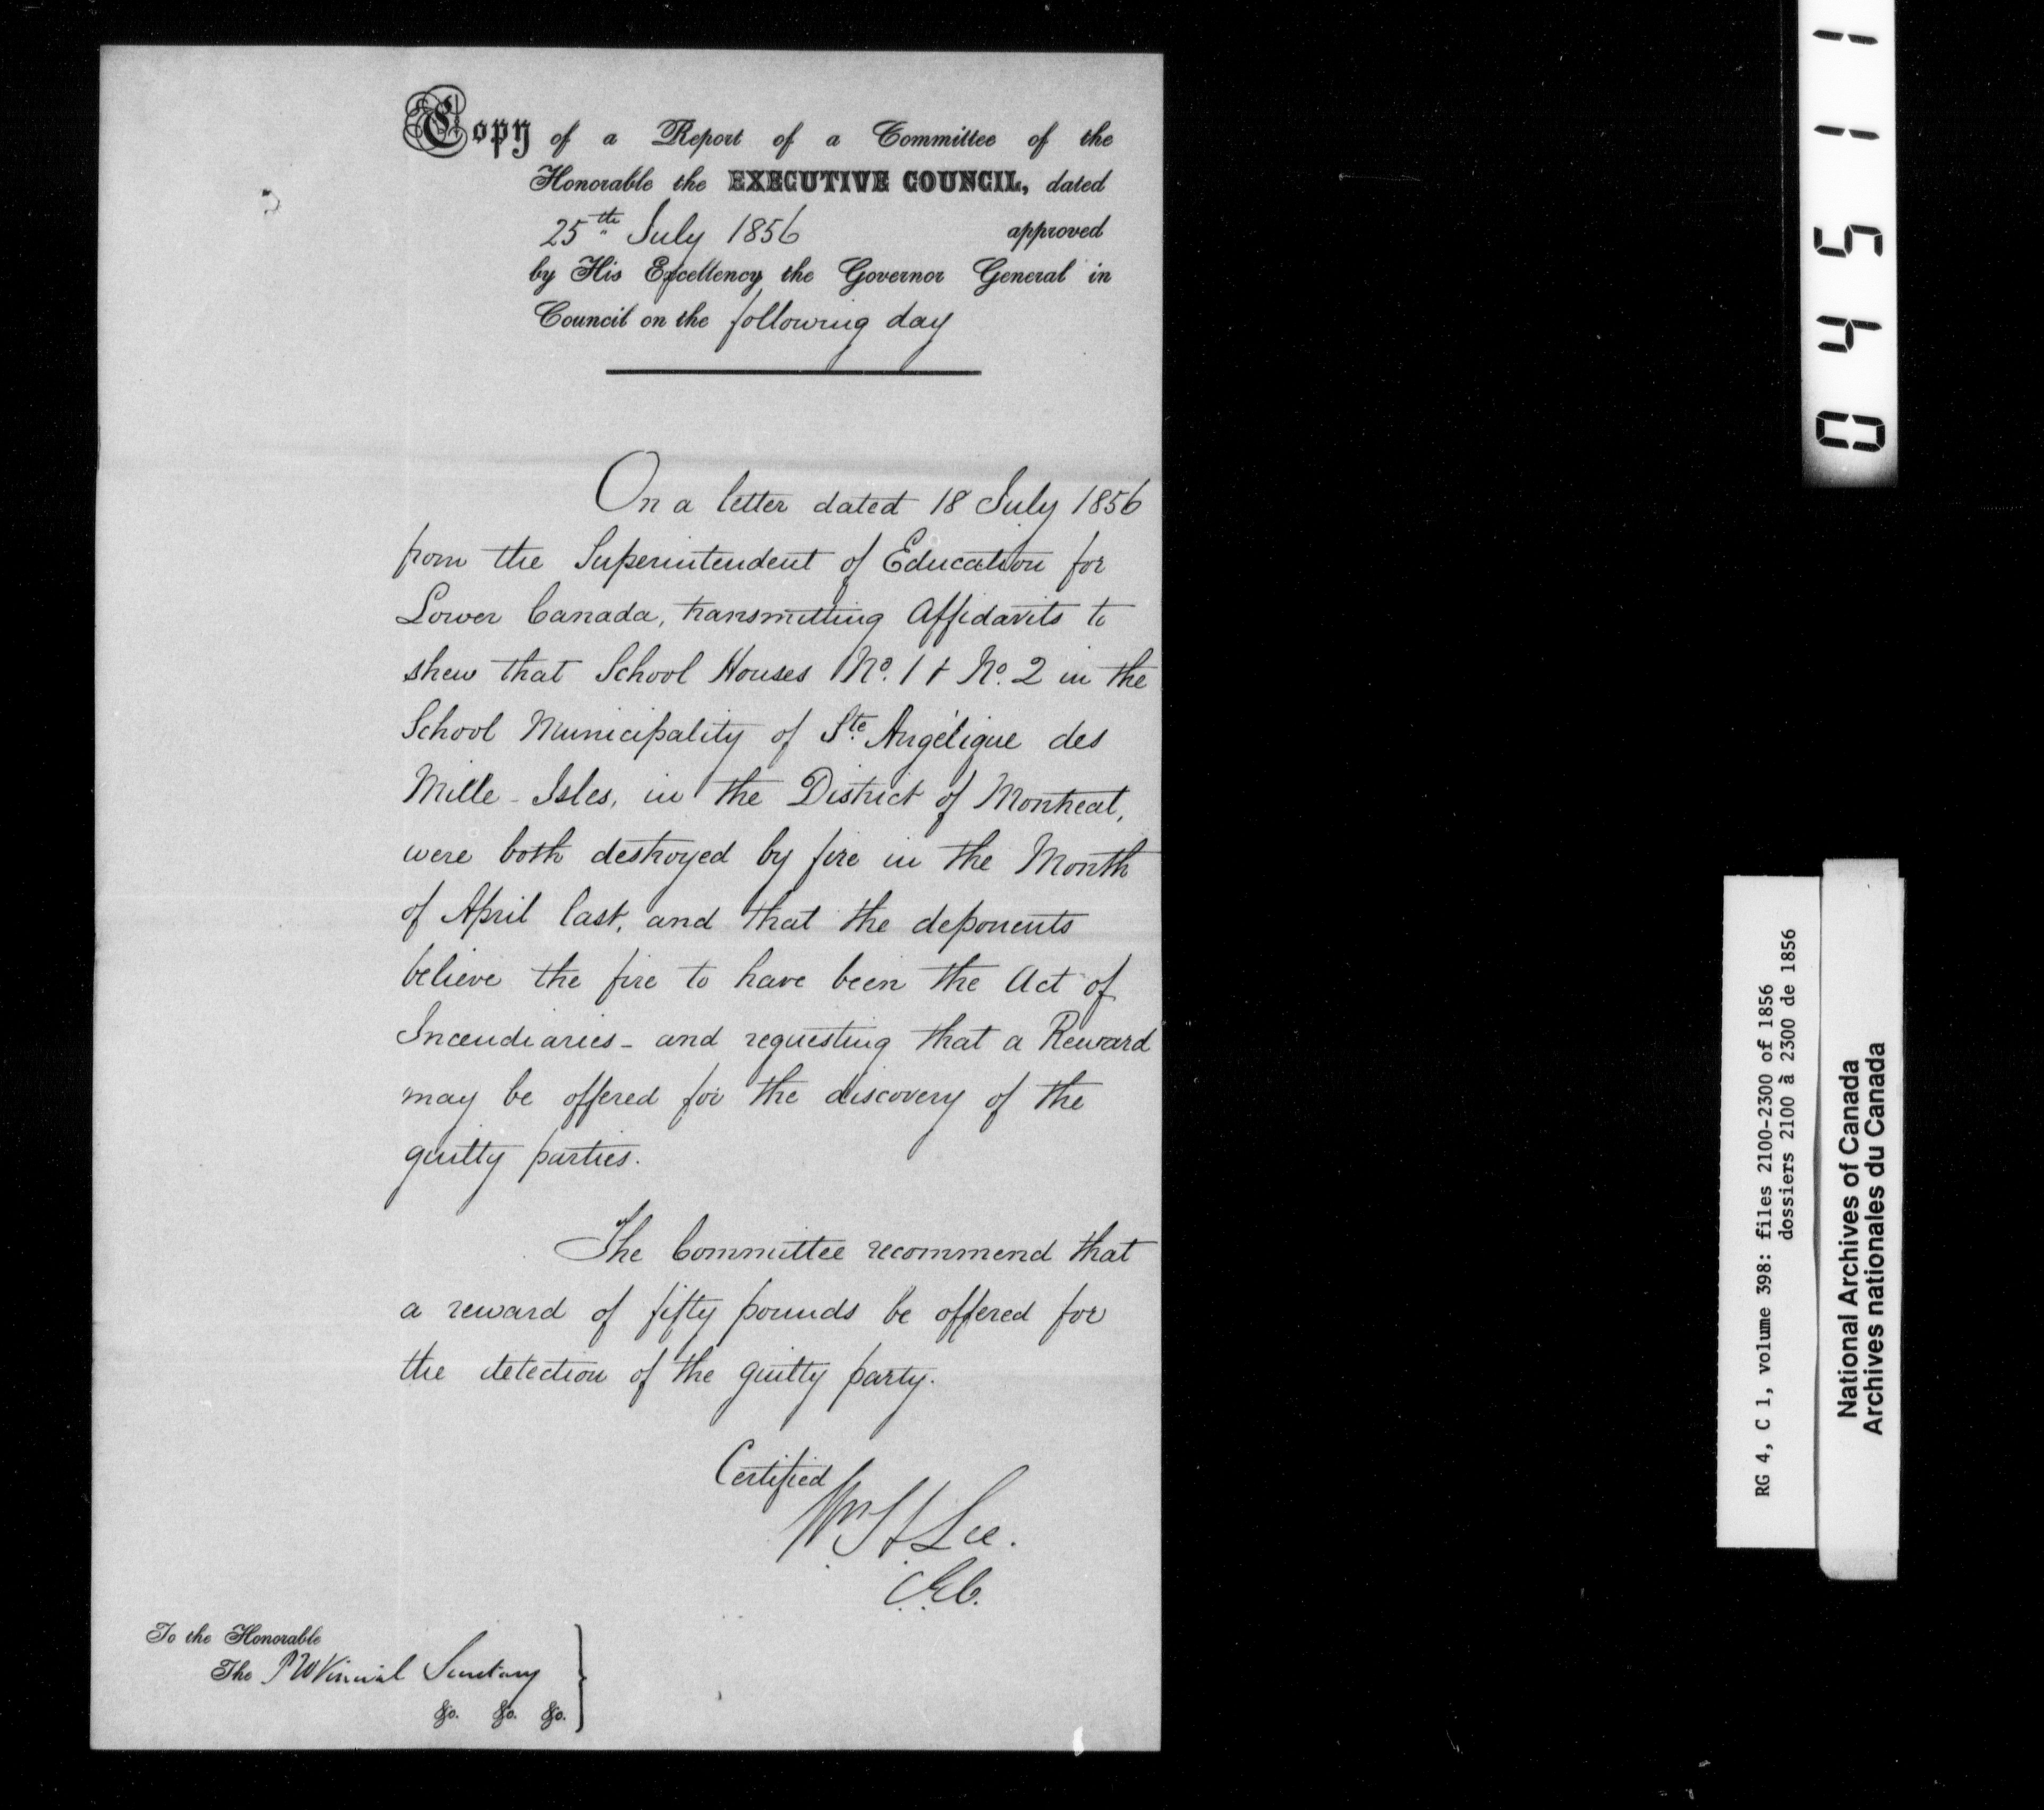 Copy of a Report of a Committee of the
Honorable the EXECUTIVE COUNCIL, dated
25th July 1856 approved
by His Excellency the Governor General in
Council on the following day
On a letter dated 18 July 1856
from the Superintendent of Education for
Lower Canada, transmitting Affidavits to
shew that School Houses No. 1 & No. 2 in the
School Municipality of Ste. Angélique des
Mille-Isles, in the District of Montreal,
were both destroyed by fire in the Month
of April last, and that the deponents
believe the fire to have been the Act of
Incendiaries - and requesting that a Reward
may be offered for the discovery of the
guilty parties.
The Committee recommend that
a reward of fifty pounds be offered for
the detection of the guilty party.
Certified
Wm H Lee.
C.E.C.
To the Honorable
The Provincial Secretary
&c. &c. &c.
04511
RG 4, C 1, volume 398: files 2100-2300 of 1856
dossiers 2100 à 2300 de 1856
National Archives of Canada
Archives nationales du Canada